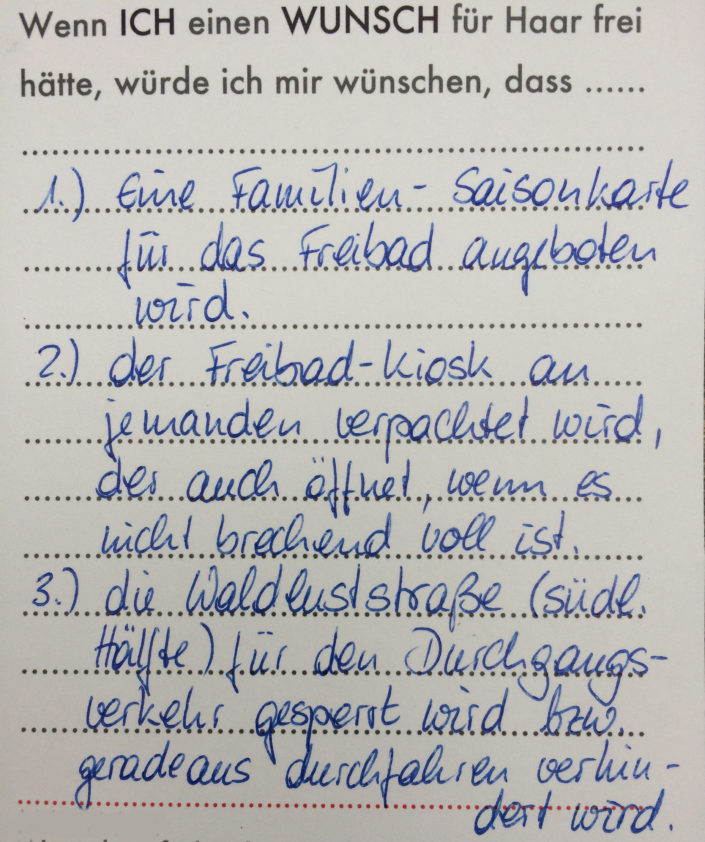 Wenn ICH einen WUNSCH für Haar frei
hätte, würde ich mir wünschen, dass ......
1.) Eine Familien- Saisonkarte
für das Freibad angeboten
wird.
2.) der Freibad-Kiosk an
jemanden verpachtet wird,
der auch öffnet, wenn es
nicht brechend voll ist.
3.) die Waldluststraße (südl.
Hälfte) für den Durchgangs-
verkehr gesperrt wird bzw.
geradeaus durchfahren verhin-
dert wird.